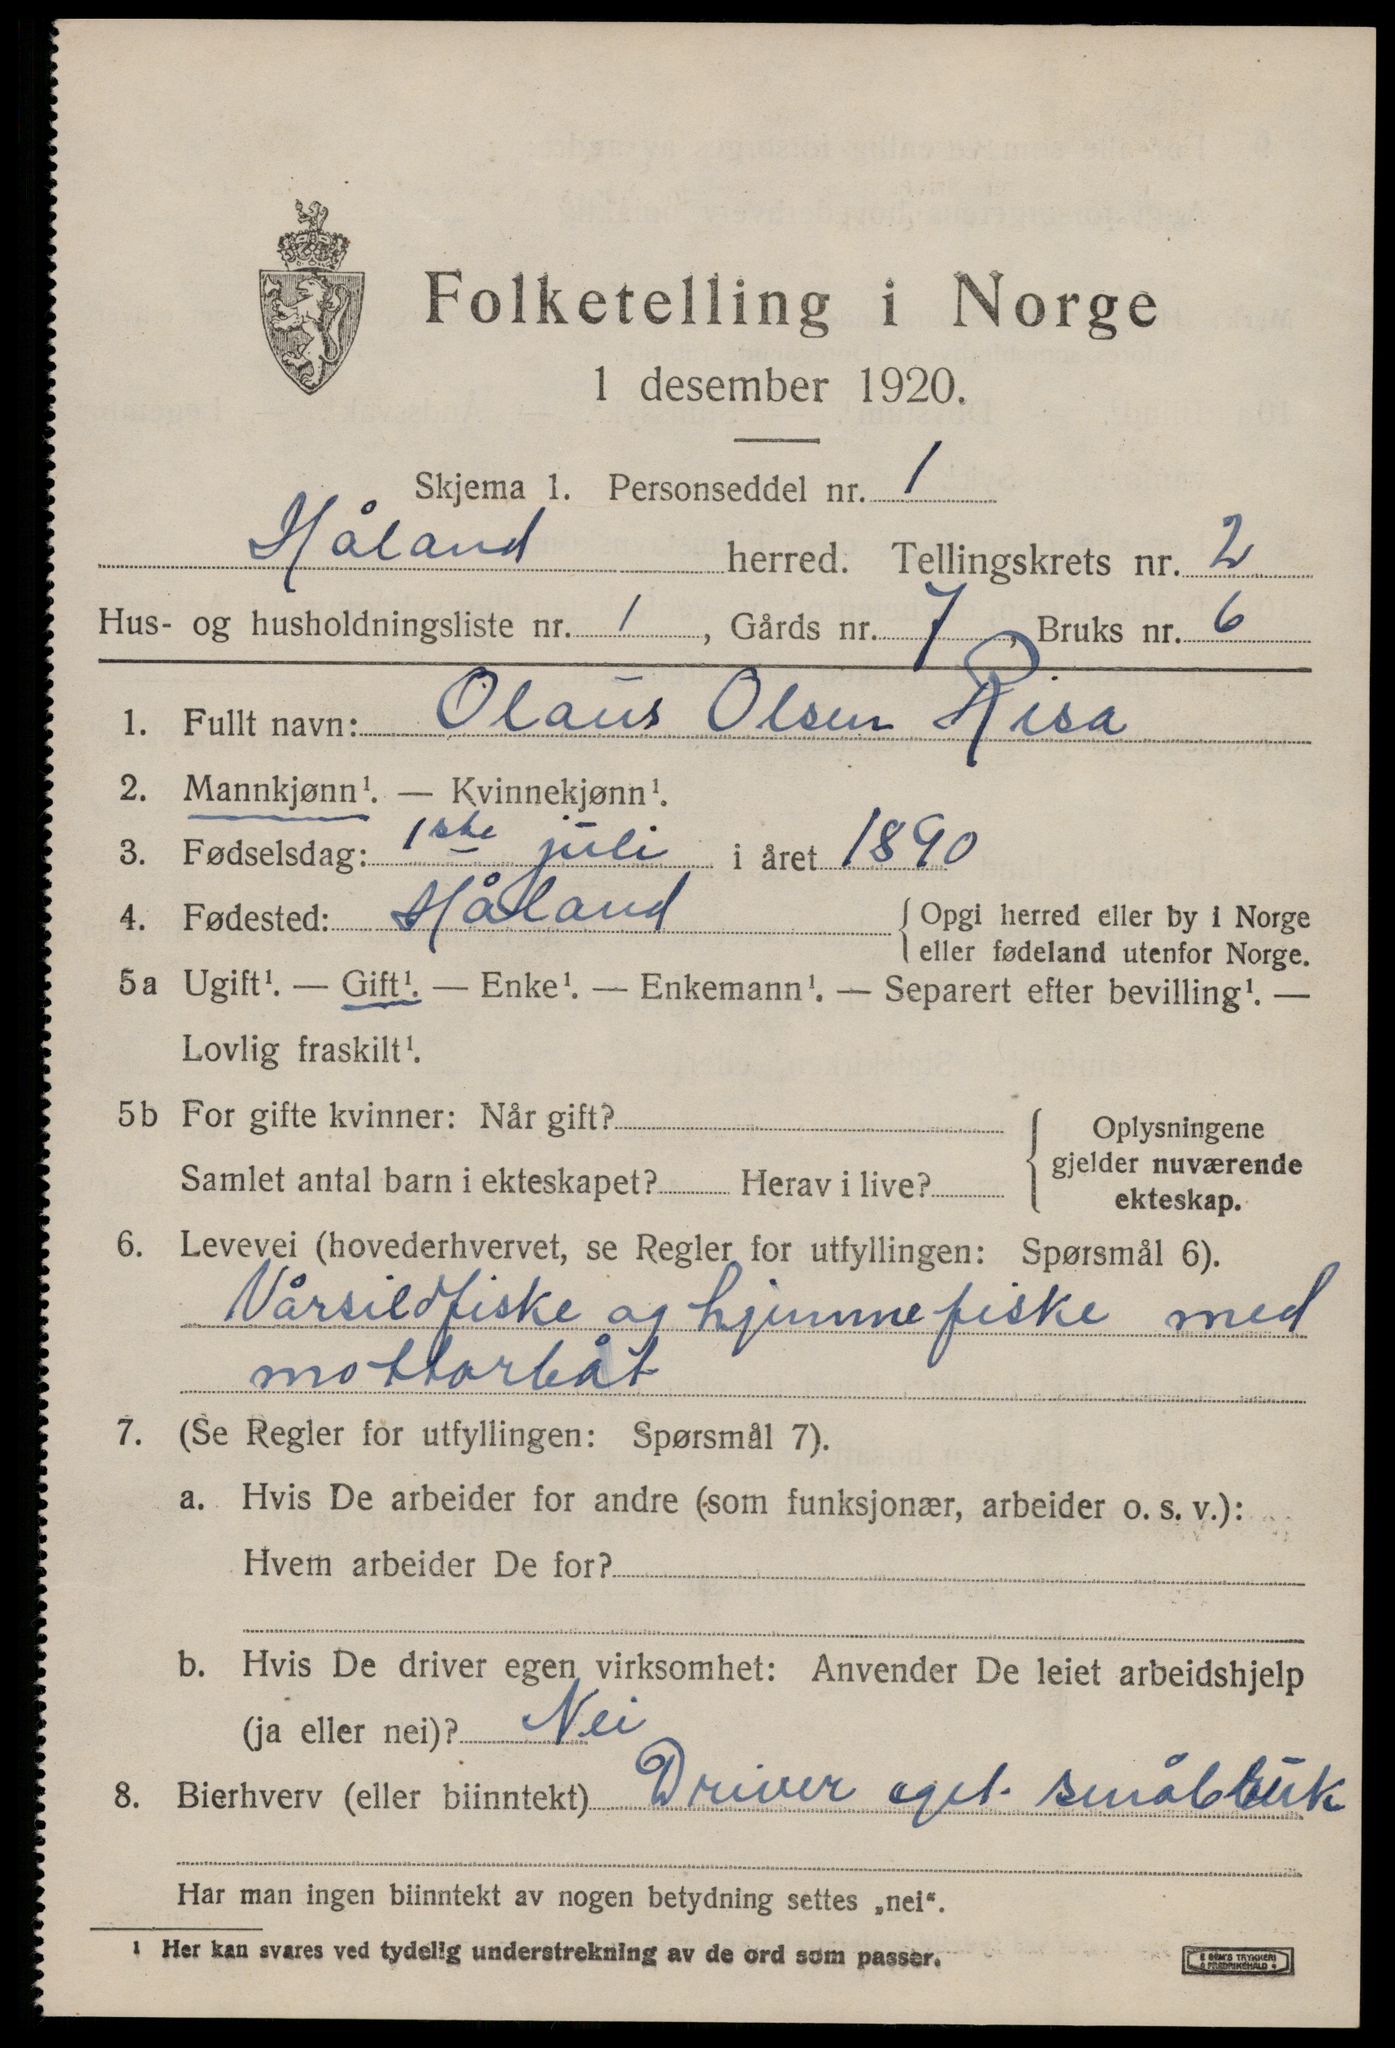 Folketelling i Norge
1 desember 1920.
Skjema 1. Personseddel nr. 1
Håland herred. Tellingskrets nr. 2
Hus- og husholdningsliste nr. 1, Gårds nr. 7, Bruks nr. 6
1. Fullt navn: Olaus Olsen Risa
2. Mannkjønn¹. — Kvinnekjønn¹.
3. Fødselsdag: 1ste juli i året 1890
4. Fødested: Håland { Opgi herred eller by i Norge
eller fødeland utenfor Norge.
5a Ugift¹. — Gift¹. — Enke¹. — Enkemann¹. — Separert efter bevilling¹. —
Lovlig fraskilt¹.
5b For gifte kvinner: Når gift?
Samlet antal barn i ekteskapet? Herav i live?
{ Oplysningene
gjelder nuværende
ekteskap.
6. Levevei (hovederhvervet, se Regler for utfyllingen: Spørsmål 6).
Vårsildfiske og hjemmefiske med
mottorbåt
7. (Se Regler for utfyllingen: Spørsmål 7).
a. Hvis De arbeider for andre (som funksjonær, arbeider o. s. v.):
Hvem arbeider De for?
b. Hvis De driver egen virksomhet: Anvender De leiet arbeidshjelp
(ja eller nei)? Nei
8. Bierhverv (eller biinntekt) Driver eget småbruk
Har man ingen biinntekt av nogen betydning settes „nei“.
¹ Her kan svares ved tydelig understrekning av de ord som passer.
E SEM'S TRYKKERI
FREDRIKSHALD